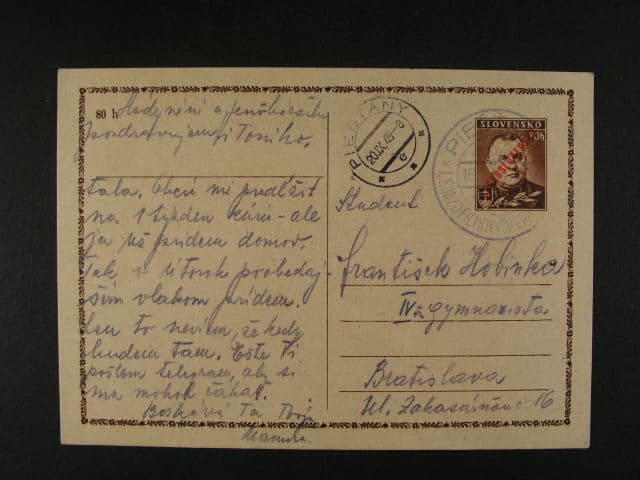 80 h
pozdravujem i Toniho.
tala. Chcú mi predĺžiť
na 1 týžden kúru - ale
ja už prídem domov.
Tak v Útorok poobedaj-
ším vlakom prídem.
Len to neviem, že kedy
budem tam. Ešte Ti
pošlem telegram, aby si
ma mohol čakať.
Bozkáva Ťa Tvoja
Mamuka.
PIEŠŤANY
20.IX.45-8
e
SLOVENSKO
70h
Študent
František Hobinka
IV. gymnazista
Bratislava
Ul. 16